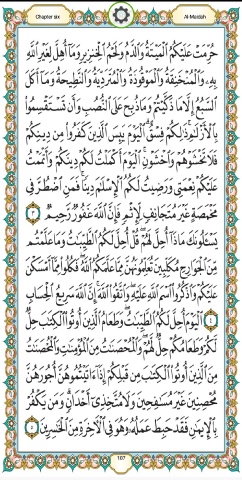 Chapter six
Al-Maidah
حُرِّمَتْ عَلَيْكُمُ الْمَيْتَةُ وَالدَّمُ وَلَحْمُ الْخِنزِيرِ وَمَا أُهِلَّ لِغَيْرِ اللَّهِ
بِهِ وَالْمُنْخَنِقَةُ وَالْمَوْقُوذَةُ وَالْمُتَرَدِّيَةُ وَالنَّطِيحَةُ وَمَا أَكَلَ
السَّبُعُ إِلَّا مَا ذَكَّيْتُمْ وَمَا ذُبِحَ عَلَى النُّصُبِ وَأَن تَسْتَقْسِمُوا
بِالْأَزْلَامِ ذَٰلِكُمْ فِسْقٌ الْيَوْمَ يَئِسَ الَّذِينَ كَفَرُوا مِن دِينِكُمْ
فَلَا تَخْشَوْهُمْ وَاخْشَوْنِ الْيَوْمَ أَكْمَلْتُ لَكُمْ دِينَكُمْ وَأَتْمَمْتُ
عَلَيْكُمْ نِعْمَتِي وَرَضِيتُ لَكُمُ الْإِسْلَامَ دِينًا فَمَنِ اضْطُرَّ فِي
مَخْمَصَةٍ غَيْرَ مُتَجَانِفٍ لِّإِثْمٍ فَإِنَّ اللَّهَ غَفُورٌ رَّحِيمٌ ٣
يَسْأَلُونَكَ مَاذَا أُحِلَّ لَهُمْ قُلْ أُحِلَّ لَكُمُ الطَّيِّبَاتُ وَمَا عَلَّمْتُم
مِّنَ الْجَوَارِحِ مُكَلِّبِينَ تُعَلِّمُونَهُنَّ مِمَّا عَلَّمَكُمُ اللَّهُ فَكُلُوا مِمَّا أَمْسَكْنَ
عَلَيْكُمْ وَاذْكُرُوا اسْمَ اللَّهِ عَلَيْهِ وَاتَّقُوا اللَّهَ إِنَّ اللَّهَ سَرِيعُ الْحِسَابِ
٤ الْيَوْمَ أُحِلَّ لَكُمُ الطَّيِّبَاتُ وَطَعَامُ الَّذِينَ أُوتُوا الْكِتَابَ حِلٌّ
لَّكُمْ وَطَعَامُكُمْ حِلٌّ لَّهُمْ وَالْمُحْصَنَاتُ مِنَ الْمُؤْمِنَاتِ وَالْمُحْصَنَاتُ
مِنَ الَّذِينَ أُوتُوا الْكِتَابَ مِن قَبْلِكُمْ إِذَا آتَيْتُمُوهُنَّ أُجُورَهُنَّ
مُحْصِنِينَ غَيْرَ مُسَافِحِينَ وَلَا مُتَّخِذِي أَخْدَانٍ وَمَن يَكْفُرْ
بِالْإِيمَانِ فَقَدْ حَبِطَ عَمَلُهُ وَهُوَ فِي الْآخِرَةِ مِنَ الْخَاسِرِينَ ٥
107